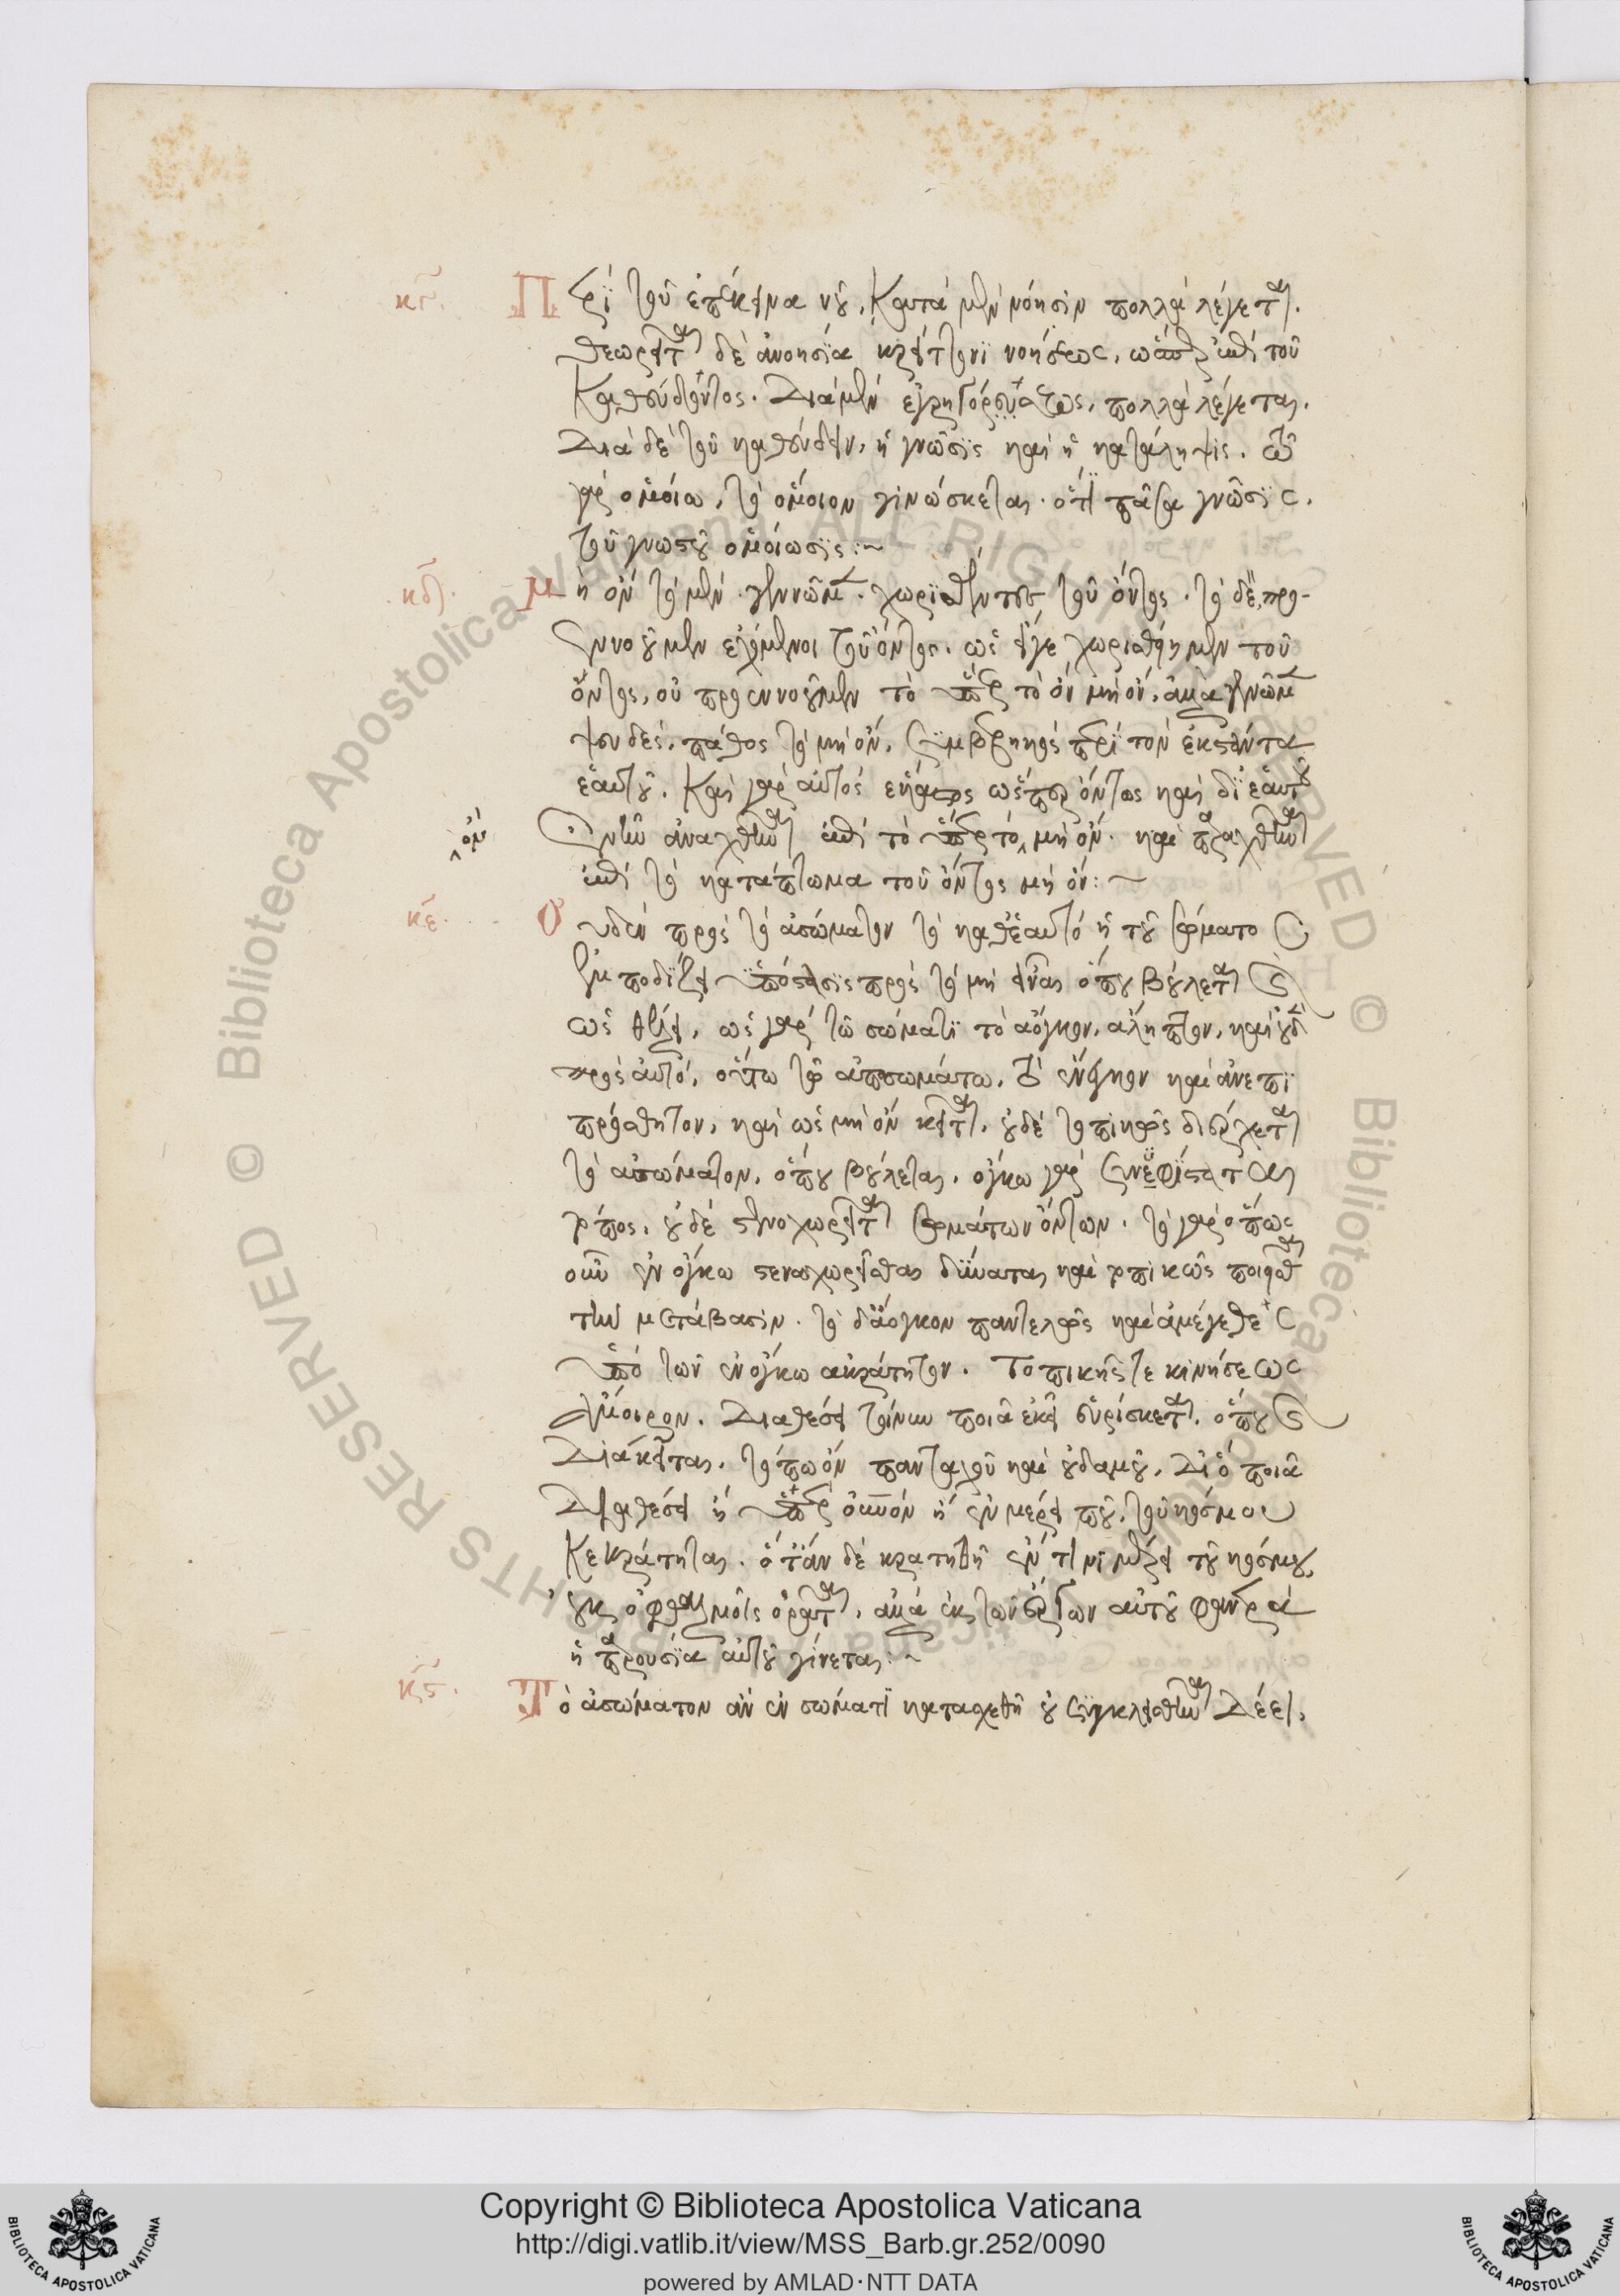 κγ. Περὶ τοῦ ἐπέκεινα νοῦ, κατὰ μὲν νόησιν πολλὰ λέγεται.
θεωρεῖται δὲ ἀνοησία κρείττονι νοήσεως, ὥσπερ ἐπὶ τοῦ
καθεύδοντος. Διὰ μὲν ἐγρηγόρσεως, πολλὰ λέγεται.
Διὰ δὲ τοῦ καθεύδειν, ἡ γνῶσις καὶ ἡ κατάληψις. τῷ
γὰρ ὁμοίω, τὸ ὅμοιον γινώσκεται. ὅτι πᾶσα γνῶσις.
τοῦ γνωστοῦ ὁμοίωσις:~
κδ. Μὴ ὂν τὸ μὲν. γεννῶμεν. χωρισθέντες τοῦ ὄντος. τὸ δὲ, προ-
εννοοῦμεν ἐχόμενοι τοῦ ὄντος. ὡς εἴγε χωρισθείημεν τοῦ
ὄντος, οὐ προεννοοῦμεν τὸ ὑπὲρ τὸ ὂν μὴ ὄν, ἀλλὰ γεννῶμεν
ψευδὲς, πάθος τὸ μὴ ὄν, συμβεβηκὸς περὶ τὸν ἐκστάντα
ἑαυτοῦ. Καὶ γὰρ αὐτὸς ἕκαστος ὥσπερ ὄντως καὶ δι' ἑαυτοῦ
ἐνῆν ἀναχθῆναι ἐπὶ τὸ ὑπὲρ τὸ μὴ ὄν. καὶ παραχθῆναι
ὂν
ἐπὶ τὸ κατάπτωμα τοῦ ὄντος μὴ ὄν:~
κε. Οὐδὲν πρὸς τὸ ἀσώματον τὸ καθ' ἑαυτὸ ἡ τοῦ σώματος
ἐμποδίζει ὑπόστασις πρὸς τὸ μὴ εἶναι ὅπου βούλεται
ὡς θέλει, ὡς γὰρ τῷ σώματι τὸ ἄογκον, ἄληπτον, καὶ οὐδὲν
πρὸς αὐτό, οὕτω τῷ ἀσωμάτω, τὸ ἔνογκον καὶ ἀνεπι
πρόσθητον, καὶ ὡς μὴ ὂν κεῖται. οὐδὲ τοπικῶς διέρχεται
τὸ ἀσώματον, ὅπου βούλεται. ὄγκω γὰρ συνεφίσταται
τόπος. οὐδὲ στενοχωρεῖται σωμάτων ὄντων. τὸ γὰρ ὅπως
οὖν ἐν ὄγκω στενοχωρεῖσθαι δύναται καὶ τοπικῶς ποιεῖσθαι
τὴν μετάβασιν. τὸ δ' ἄογκον παντελῶς καὶ ἀμέγεθες
ὑπὸ τῶν ἐν ὄγκω ἀκράτητον. Τοπικῆς τε κινήσεως
ἄμοιρον. Διαθέσει τοίνυν ποιᾷ ἐκεῖ εὑρίσκεται, ὅπου
Διάκειται. τόπω ὂν πανταχοῦ καὶ οὐδαμοῦ. Διὸ ποιᾷ
Διαθέσει ἢ ὑπὲρ οὐνὸν ἢ ἐν μέρει που, τοῦ κόσμου
κεκράτηται. ὅταν δὲ κρατηθῇ ἔν τινι μέρει τοῦ κόσμου,
οὐκ ὀφθαλμοῖς ὁρᾶται, ἀλλὰ ἐκ τῶν ἔργων αὐτοῦ φανερὰ
ἡ παρουσία αὐτοῦ γίνεται:~
κς. Τὸ ἀσώματον ἂν ἐν σώματι κατασχεθῇ οὐ συγκλεισθῆναι Δέει,
Copyright © Biblioteca Apostolica Vaticana
http://digi.vatlib.it/view/MSS_Barb.gr.252/0090
powered by AMLAD·NTT DATA
BIBLIOTECA APOSTOLICA VATICANA
BIBLIOTECA APOSTOLICA VATICANA
© Biblioteca Apostolica Vaticana ALL RIGHTS RESERVED © Biblioteca Apostolica Vaticana ALL RIGHTS RESERVED